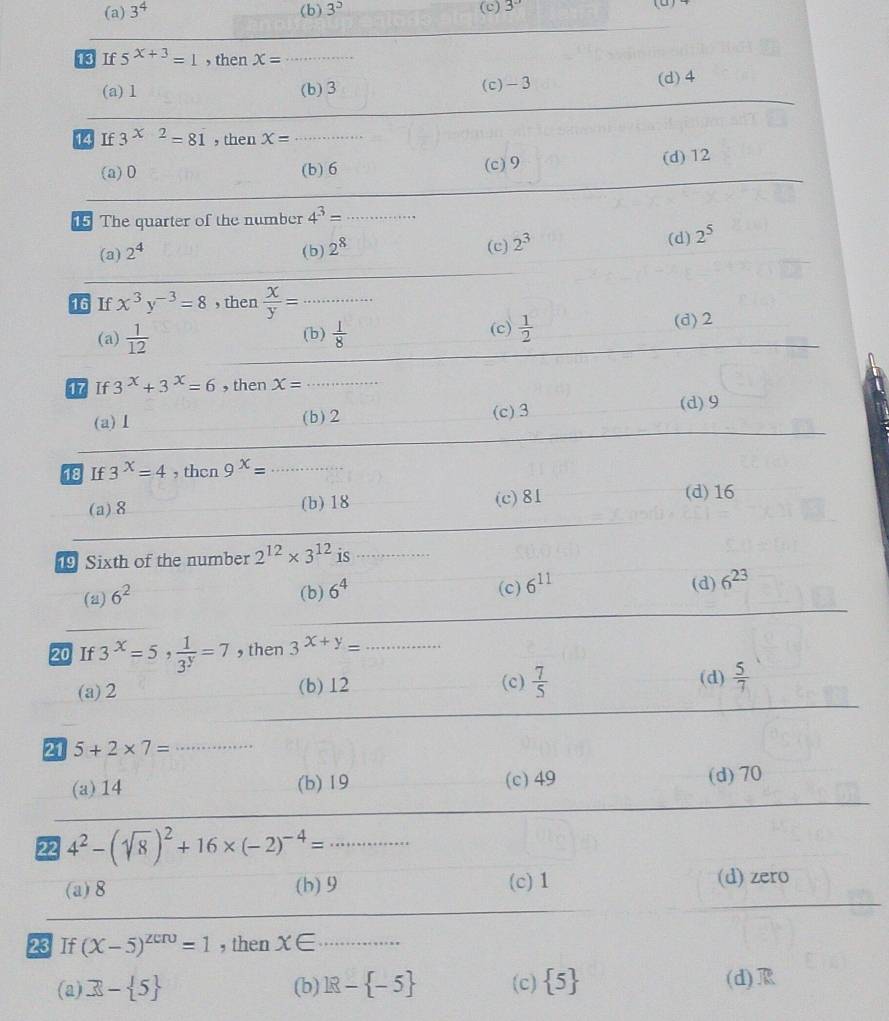 (a) 3⁴ (b) 3⁵ (c) 3
13 If 5^(x + 3) = 1 , then x = ..............
(a) 1 (b) 3 (c) – 3 (d) 4
14 If 3^(x 2) = 81 , then x = ..............
(a) 0 (b) 6 (c) 9 (d) 12
15 The quarter of the number 4³ = ..............
(a) 2⁴ (b) 2⁸ (c) 2³ (d) 2⁵
16 If x³ y⁻³ = 8 , then x/y = ..............
(a) 1/12 (b) 1/8 (c) 1/2 (d) 2
17 If 3^x + 3^x = 6 , then x = ..............
(a) 1 (b) 2 (c) 3 (d) 9
18 If 3^x = 4 , then 9^x = ..............
(a) 8 (b) 18 (c) 81 (d) 16
19 Sixth of the number 2¹² × 3¹² is ..............
(a) 6² (b) 6⁴ (c) 6¹¹ (d) 6²³
20 If 3^x = 5 , 1/3^y = 7 , then 3^(x + y) = ..............
(a) 2 (b) 12 (c) 7/5 (d) 5/7
21 5 + 2 × 7 = ..............
(a) 14 (b) 19 (c) 49 (d) 70
22 4² – (√8)² + 16 × (– 2)⁻⁴ = ..............
(a) 8 (b) 9 (c) 1 (d) zero
23 If (x – 5)^zero = 1 , then x ∈ ..............
(a) ℝ – {5} (b) ℝ – {– 5} (c) {5} (d) ℝ